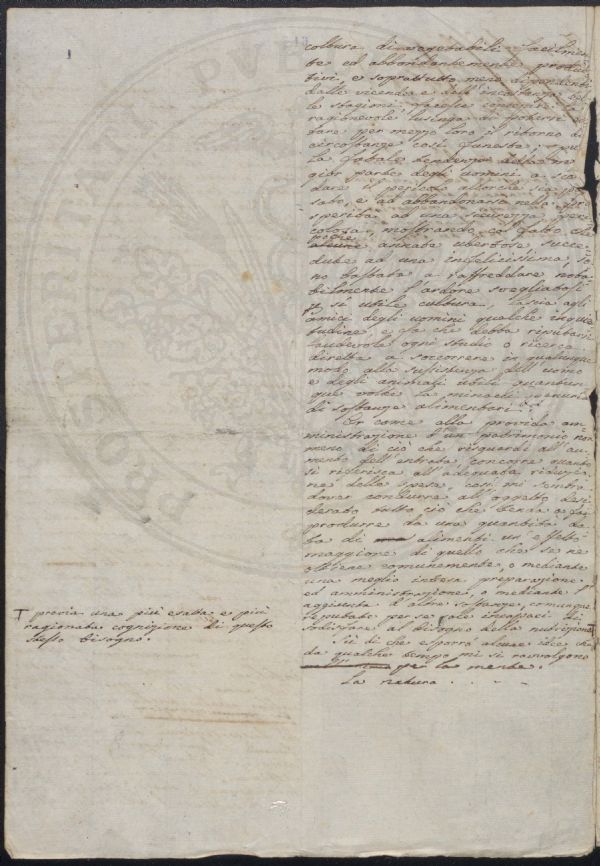 coltura di vegetabili facilmen
te ed abbondantemente produt
tivi, e soprattutto meno dipendenti
dalle vicende e dall'incostanza del
le stagioni,
ragionevole lusinga di
tare per mezzo loro il ritorno di
circostanze così funeste;
la fatale tendenza della mag
gior parte degli uomini a
dare il pericolo allorchè sia pas
sato, e ad abbandonarsi nella pro
sperità ad una sicurezza peri
colosa, mostrando col fatto che
poche
alcune annate ubertose, succe
dute ad una infelicissima, so
no bastate a raffreddare nota
bilmente l'ardore svegliatosi
p sì utile cultura, lascia agli
amici degli uomini qualche inquie
tudine, e fa che debba riputarsi
laudevole ogni studio o ricerca
diretta a soccorrere in qualunque
modo alla sussistenza dell'uomo
e degli animali utili quantun
que volte la minacci penuria
di sostanze alimentari.
Or come alla provida am
ministrazione d'un patrimonio non
meno di ciò che risguardi all'au
mento dell'entrata, concorre quanto
si riferisca all'adequata riduzio
ne delle spese, così mi sembra
dover condurre all'oggetto desi
derato tutto ciò che tenda a far
produrre da una quantità da
ta di alimenti un effetto
maggiore di quello che se ne
ottiene comunemente, o mediante
una meglio intesa preparazione
ed amministrazione, o mediante l'
aggiunta d'altre sostanze, comunque
reputate per se sole incapaci di
sodisfare al bisogno della nutrizione
Su di che esporrò alcune idee che
da qualche tempo mi si ravvolgono
per la mente.
La natura . . . .
T previa una più esatta e più
ragionata cognizione di questo
stesso bisogno.
PROSPERITATI PVB